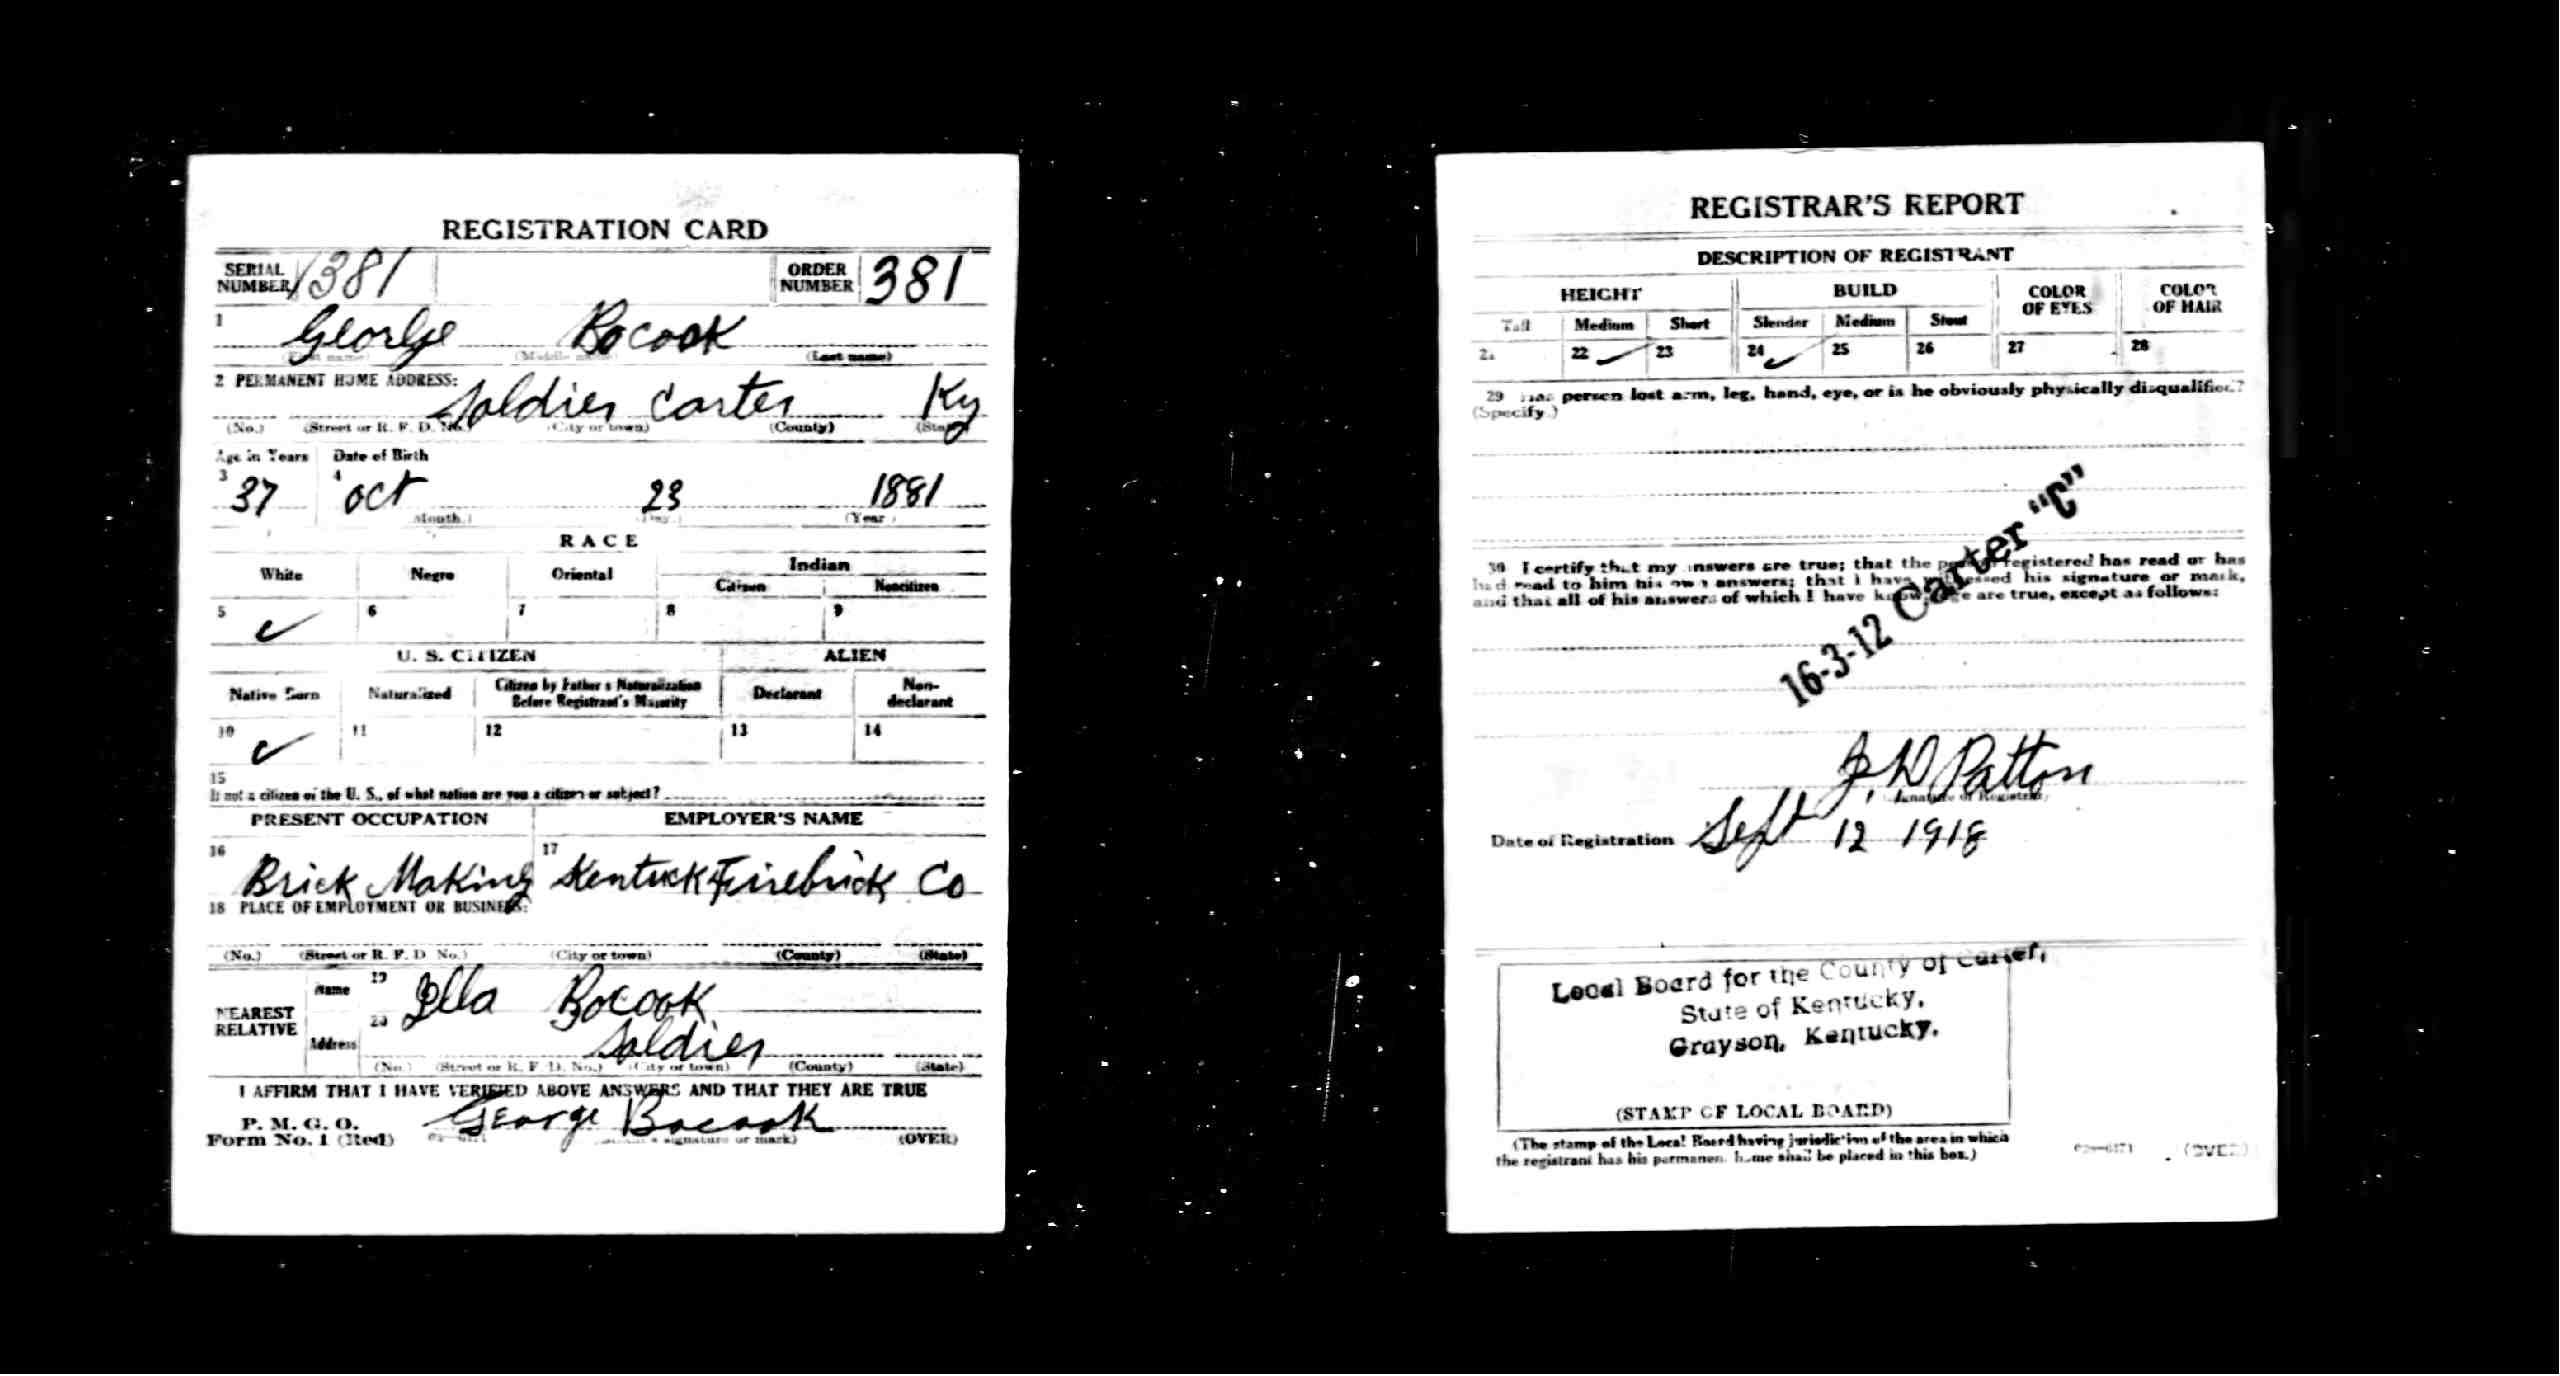 REGISTRATION CARD
SERIAL NUMBER 1381 ORDER NUMBER 381
1 George Bocook
(First name) (Middle name) (Last name)
2 PERMANENT HOME ADDRESS:
Soldier Carter Ky
(No.) (Street or R. F. D. No.) (City or town) (County) (State)
Age in Years Date of Birth
3 37 4 Oct 23 1881
(Month.) (Day.) (Year.)
RACE
White Negro Oriental Indian
Citizen Noncitizen
5 ✓ 6 7 8 9
U. S. CITIZEN ALIEN
Native Born Naturalized Citizen by Father's Naturalization Before Registrant's Majority Declarant Non-declarant
10 ✓ 11 12 13 14
15
If not a citizen of the U. S., of what nation are you a citizen or subject?
PRESENT OCCUPATION EMPLOYER'S NAME
16 Brick Making 17 Kentucky Firebrick Co
18 PLACE OF EMPLOYMENT OR BUSINESS:
(No.) (Street or R. F. D. No.) (City or town) (County) (State)
NEAREST RELATIVE
Name 19 Ella Bocook
Address 20 Soldier
(No.) (Street or R. F. D. No.) (City or town) (County) (State)
I AFFIRM THAT I HAVE VERIFIED ABOVE ANSWERS AND THAT THEY ARE TRUE
P. M. G. O.
Form No. 1 (Red) George Bocook
signature or mark) (OVER)
REGISTRAR'S REPORT
DESCRIPTION OF REGISTRANT
HEIGHT BUILD COLOR OF EYES COLOR OF HAIR
Tall Medium Short Slender Medium Stout
21 22 ✓ 23 24 ✓ 25 26 27 28
29 Has person lost arm, leg, hand, eye, or is he obviously physically disqualified?
(Specify.)
30 I certify that my answers are true; that the person registered has read or has
had read to him his own answers; that I have witnessed his signature or mark,
and that all of his answers of which I have knowledge are true, except as follows:
16-3-12 Carter "C"
J. D. Patton
(Signature of Registrar)
Date of Registration Sept 12 1918
Local Board for the County of Carter,
State of Kentucky,
Grayson, Kentucky.
(STAMP OF LOCAL BOARD)
(The stamp of the Local Board having jurisdiction of the area in which
the registrant has his permanent home shall be placed in this box.)
(OVER)